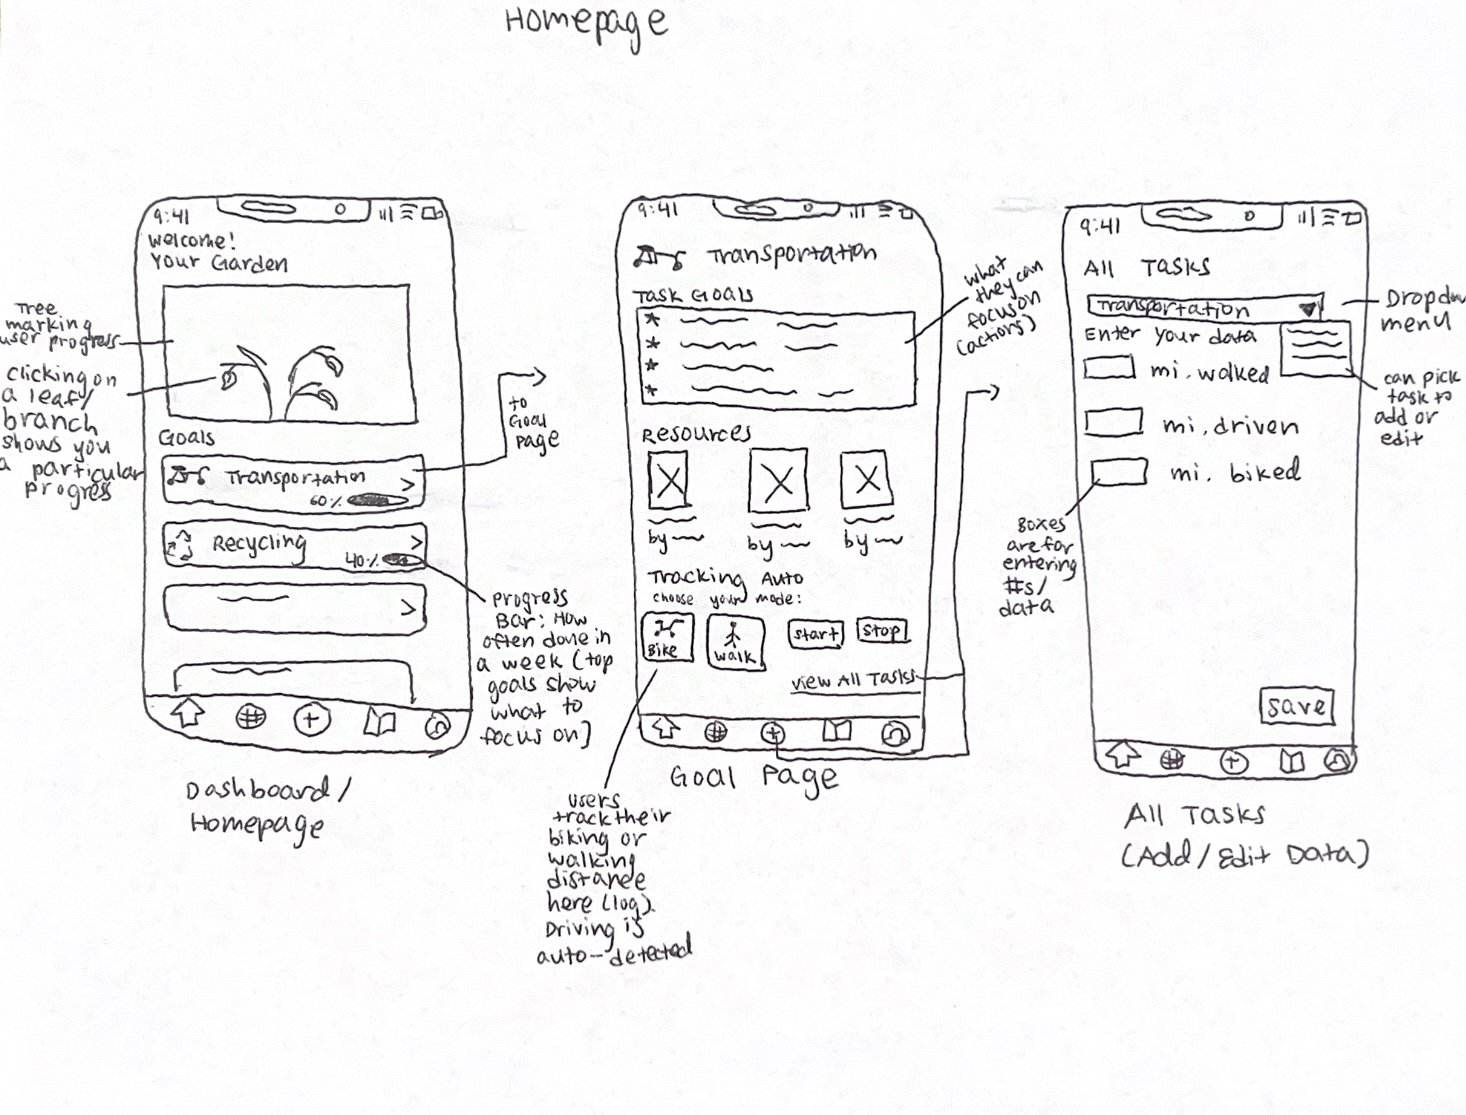 Homepage
9:41
Welcome!
Your Garden
Tree
marking
user progress
clicking on
a leaf/
branch
shows you
a particular
progress
Goals
Transportation
60%
Recycling
40%
to
Goal
page
progress
Bar: How
often done in
a week (top
goals show
what to
focus on]
Dashboard/
Homepage
9:41
Transportation
Task Goals
*
*
*
*
what
they can
focus on
(actions)
Resources
by
by
by
Tracking Auto
choose your mode:
Bike
walk
start
stop
view All Tasks
Goal Page
users
track their
biking or
walking
distance
here (log).
Driving is
auto-detected
9:41
All Tasks
Transportation
Dropdow
menu
Enter your data
mi. walked
mi. driven
mi. biked
can pick
task to
add or
edit
Boxes
are for
entering
#s/
data
save
All Tasks
(Add/Edit Data)